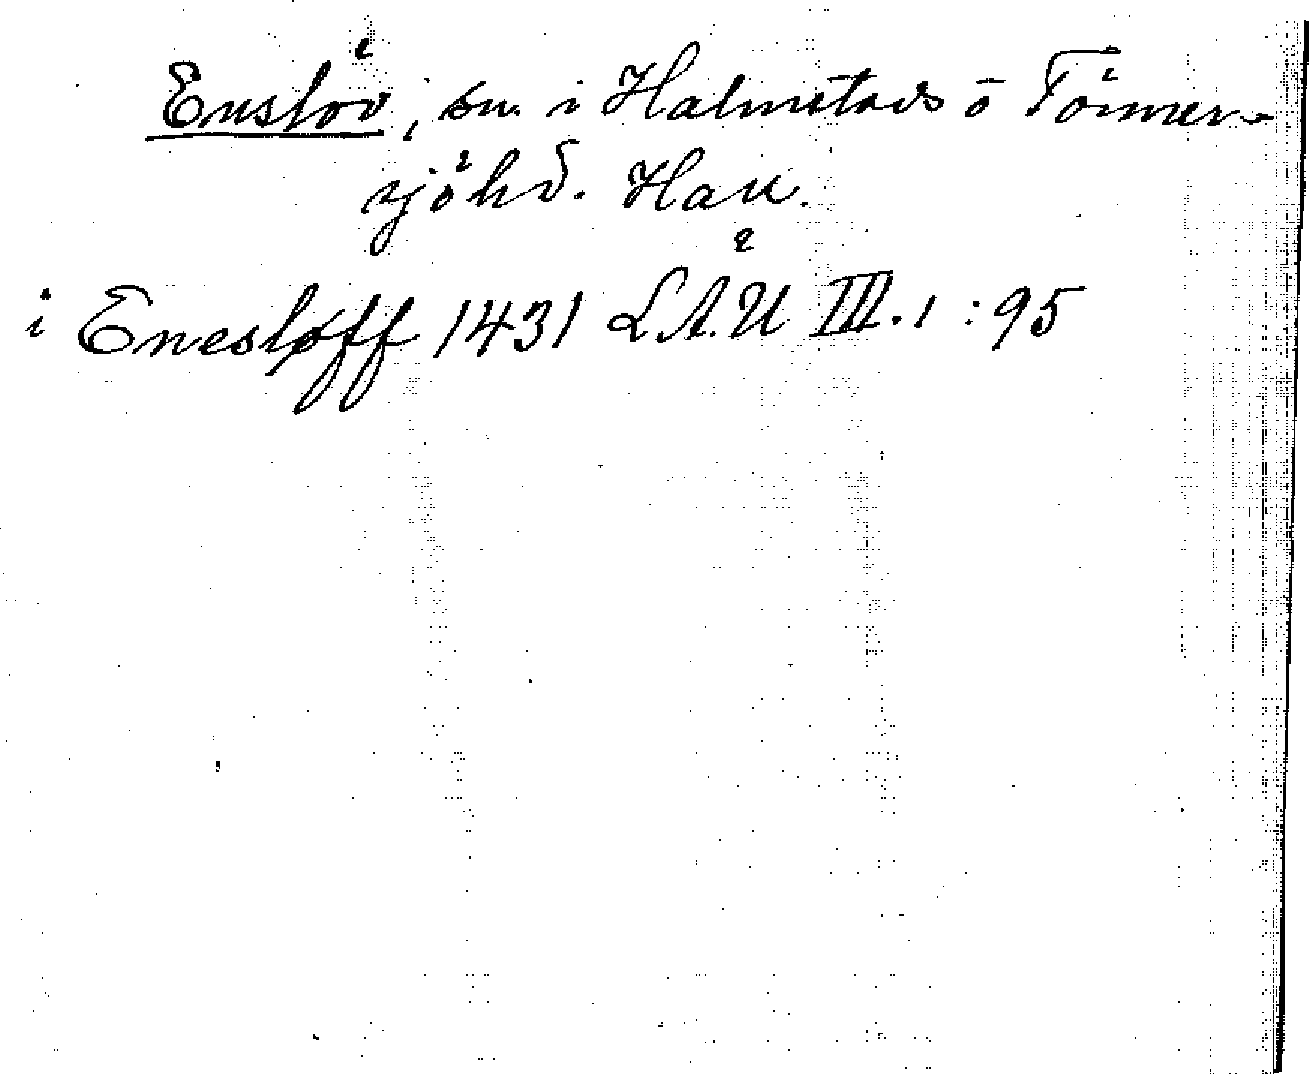 Enslöv, sn. i Halmstads o Tönner-
sjöhd. Hall.
i Enesløff 1431 LÄU III.1:95